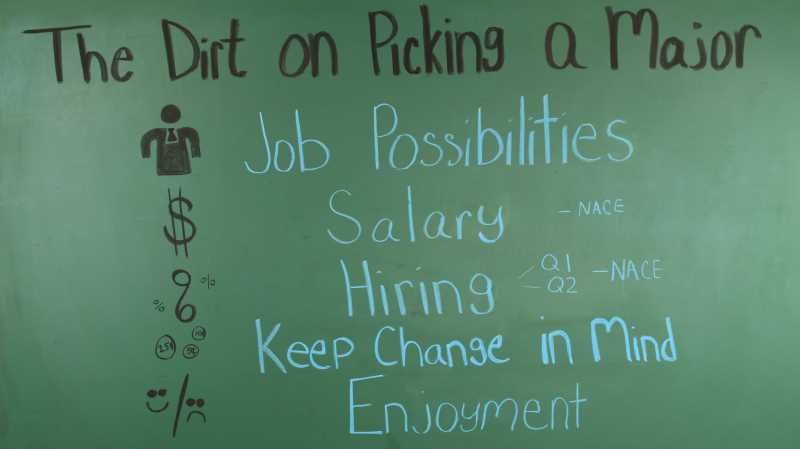 The Dirt on Picking a Major
Job Possibilities
$ Salary - NACE
% % Hiring Q1 - NACE
Q2
25¢ Keep Change in Mind
Enjoyment